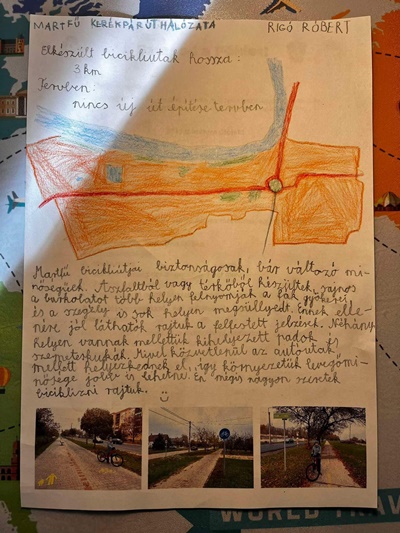 MARTFŰ KERÉKPÁRÚTHÁLÓZATA RIGÓ RÓBERT
Elkészült bicikliutak hossza:
3 km
Tervben:
nincs új út építése tervben
Martfű bicikliútjai biztonságosak, bár változó mi-
nőségűek. Aszfaltból vagy térkőből készültek, sajnos
a burkolatot több helyen felnyomják a fák gyökerei
és a szegély is sok helyen megsüllyedt. Ennek elle-
nére jól láthatók rajtuk a felfestett jelzések. Néhány
helyen vannak mellettük kihelyezett padok és
szemeteskukák. Mivel közvetlenül az autóutak
mellett helyezkednek el, így környezetük levegőmi-
nősége jobb is lehetne. Én mégis nagyon szeretek
biciklizni rajtuk.
WORLD TRAV